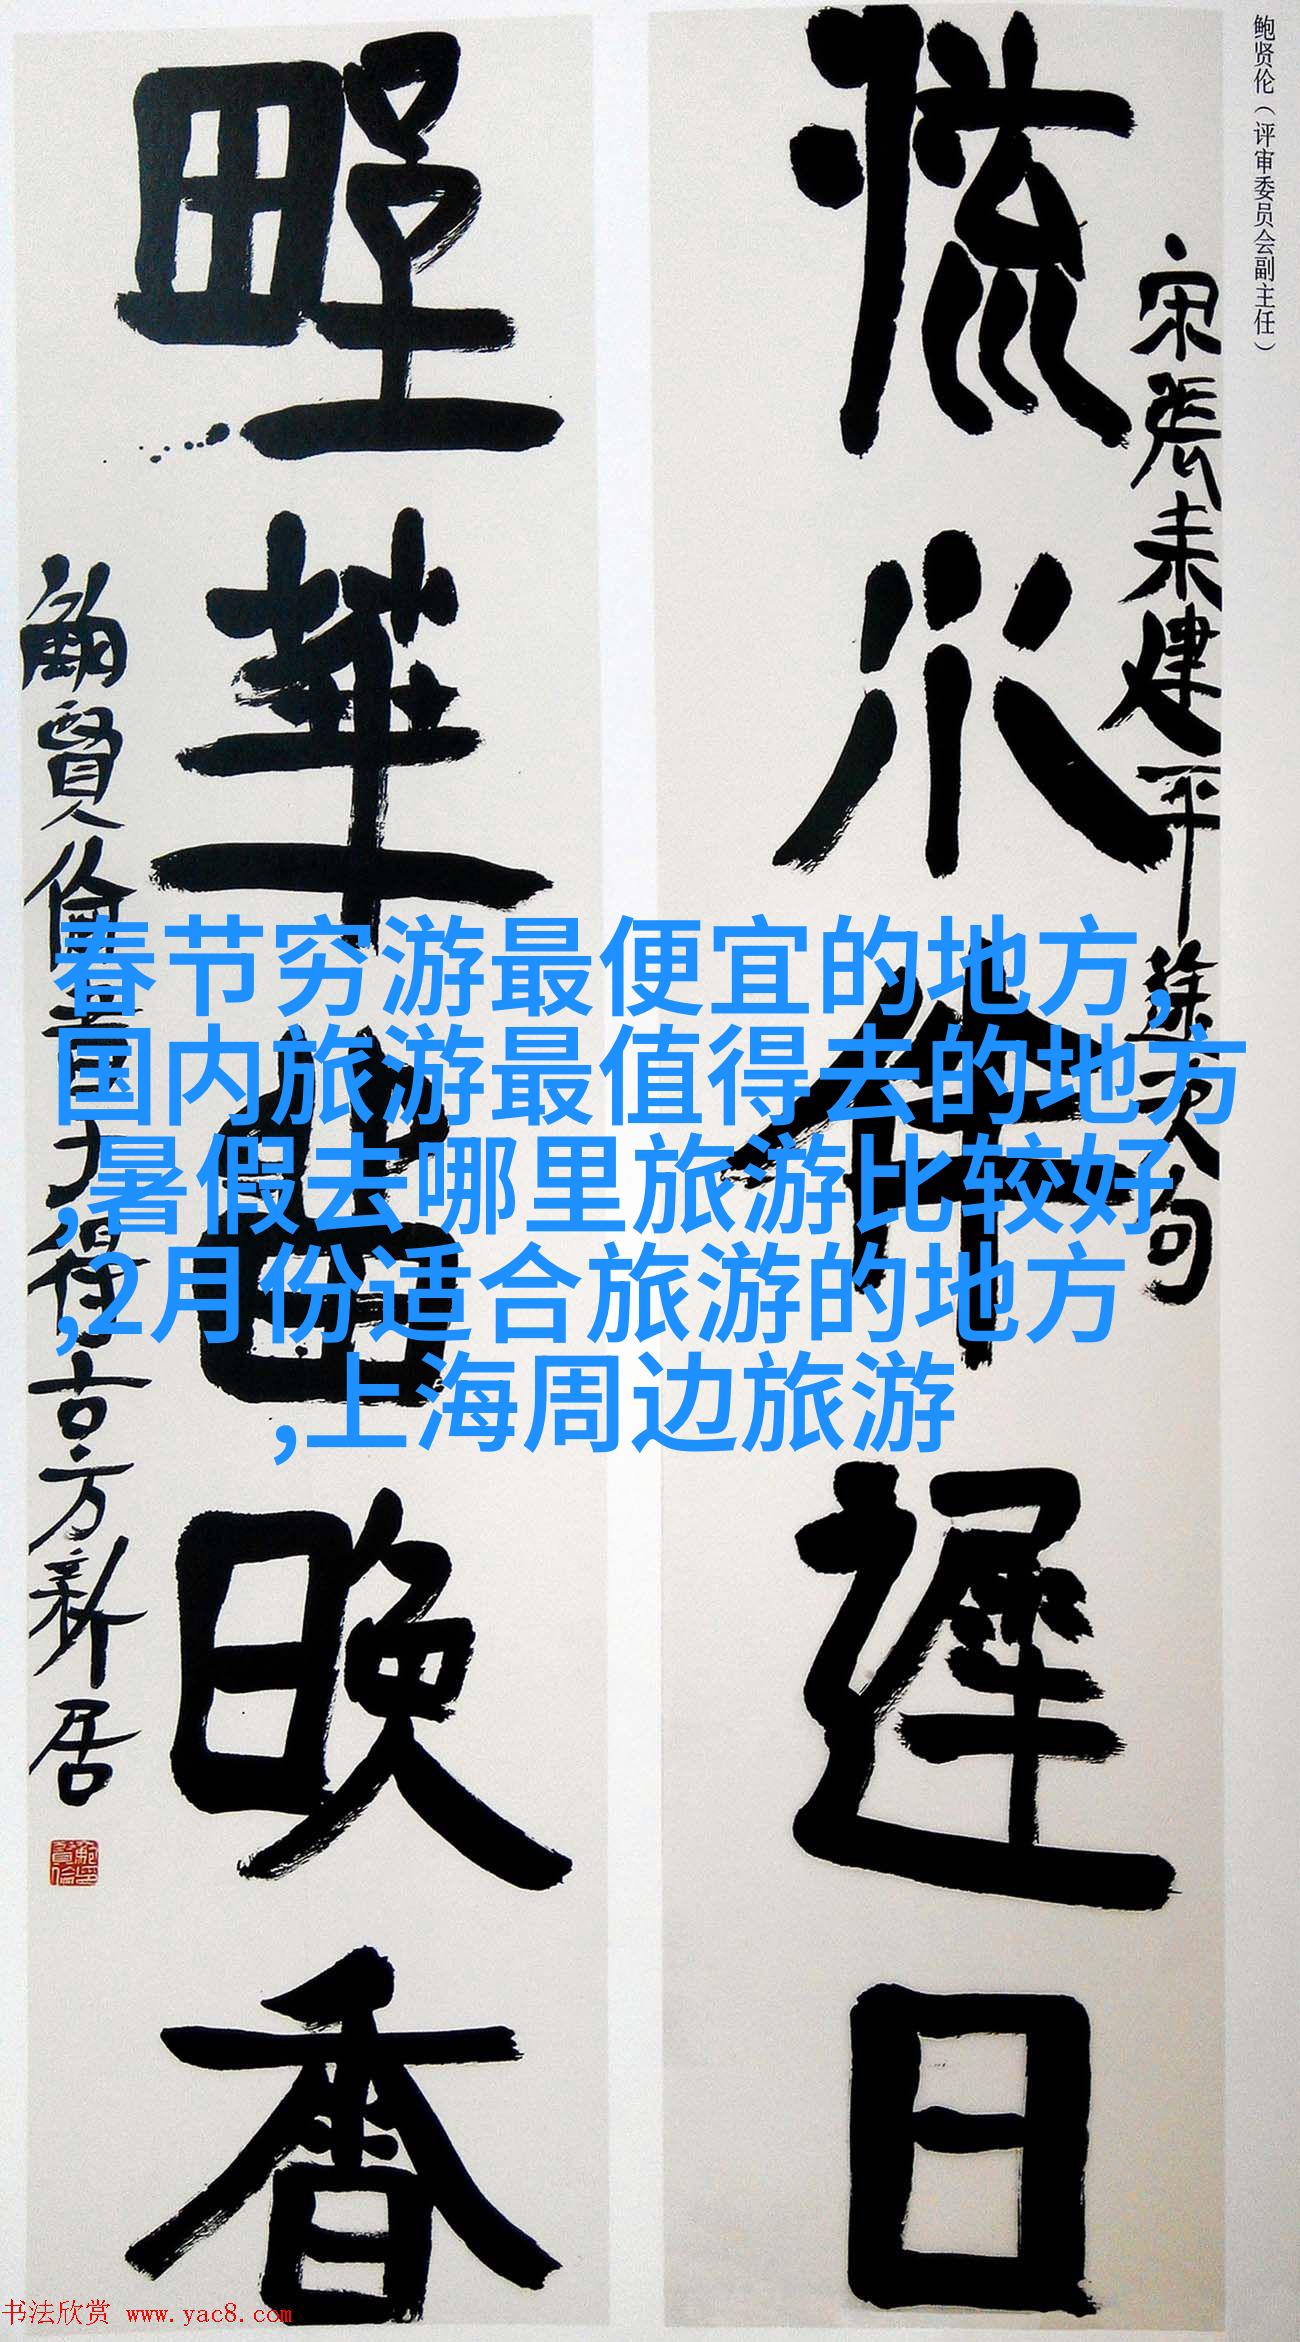 鲍贤伦（评审委员会副主任）
宋張耒建平途次句
流水伴遲日
野華晚香
鮑賢倫書得古方新居
春节穷游最便宜的地方,
国内旅游最值得去的地方
,暑假去哪里旅游比较好
,2月份适合旅游的地方
,上海周边旅游
书法欣赏 www.yac8.com